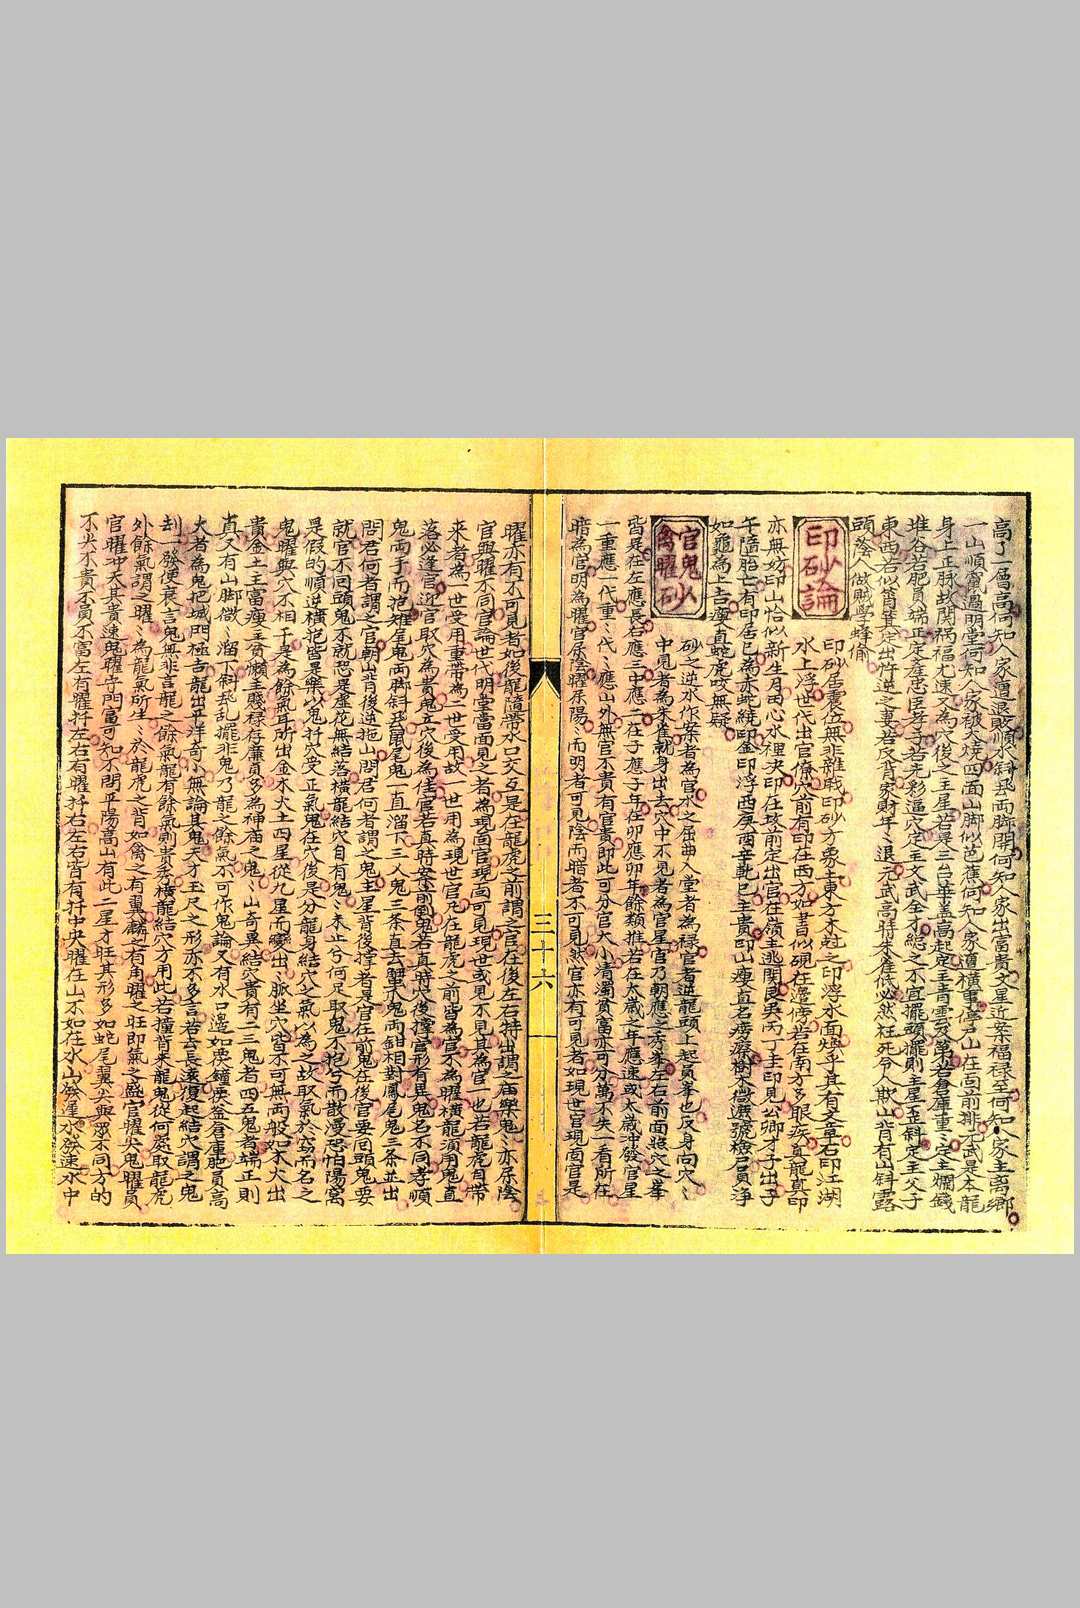 高了一層高何知人家遭退敗順水斜去兩脚開何知人家出富貴文星近案福祿至何知人家主离鄉
一山順竄過明堂何知人家被火燒四面山脚似芭蕉何知人家須橫事停尸山在面前排元武是本龍
身上正脉故関禍福尤速又為穴後之主星若尋三台華盖高起定主青雲及第若倉庫重〻定主爛錢
堆谷若肥員端正定產忠臣孝子若光彩逼穴定主文武全才總之不宜擺頭擺則主星歪斜定主父子
東西若似筲箕定出忤逆之裏若反背家財年〻退元武高時朱雀低必然枉死令人欺山背有山斜露
頭發人做賊學蜂偷
印砂論
印砂居震位無非雜戰印砂方象土東方木尅之印浮水面煥乎其有文章石印江湖
水上浮世代出官僚穴前有印在西方如書似硯在邊傍若在南方多眼疾真龍真印
亦無妨印山恰似新生月田心水裡决印在坟前定出官在濱主逃関艮吳丙丁主印見公卿才子出子
午隨胎亡有印居巳為赤蛇繞印金印浮西庚酉辛乾巳主貴印山瘦直名癆瘵樹木微遮號檢石員淨
如龜為上吉瘦直蛇虎咬無疑
官鬼禽曜砂
砂之逆水作案者為官水之屈曲入堂者為禄官者逆龍頭上起員峯也反身向穴〻
中見者為朱雀就身出去穴中不見者為官星官乃朝應之秀峯左右前面照穴之峯
皆是在左應長右應三中應二在子應子年在卯應卯年餘類推若在太歲之年應速或太歲冲發官星
一重應一代重〻代〻應山外無官不貴有官貴即此可分官大小清濁貧富亦可分萬不失一看所在
暗為官明為曜官居陰曜居陽〻而明者可見陰而暗者不可見然官亦有可見者如現世官現面官是
三十六
曜亦有不可見者如後龍隨帶水口交互是在龍虎之前謂之官在後左右持出謂之庙樂鬼〻亦居陰
官與曜不同官論世代明堂當面見之者為現面官現面可見現世或見不見其為官一也若龍虎官帶
來者為一世受用重帶為二世受用故一世用為現世官凡在龍虎之前皆為官不為曜橫龍須用鬼直
落必逢官迎官取穴為貴鬼立穴後為佳官若真時案前倒鬼若真時穴後撐官形有異鬼名不同孝順
鬼両手而抱雉尾鬼両脚斜去鼠尾鬼一直溜下三人鬼三条直去蟹爪鬼両鉗相對鳳尾鬼三条並出
問君何者謂之官朝山背後逆拖山問君何者謂之鬼主星背後撑者是官在前鬼在後官要囘頭鬼要
就官不囘頭鬼不就恐是虛花無結落橫龍結穴自有鬼〻来止兮何足取鬼不抱兮而散漫恐怕陽窩
是假的順逆橫抱皆是樂以鬼扦穴受正氣鬼在穴後是分龍身結穴之氣以為之故取氣於窃而名之
鬼曜與穴不相干是為餘氣耳所出金木火土四星從九星而變出〻脉坐穴皆不可無両般如木火出
貴金土主富瘦主貧懶主賤禄存廉貞多為神庙之鬼〻山奇異結穴貴有二三鬼者四五鬼者端正則
真又有山脚微〻溜下斜势乱擺非鬼乃龍之餘氣不可作鬼論又有水口邊如展鐘展盆倉庫肥員高
大者為鬼把城門極吉龍出平洋奇小無論其鬼天才玉尺之形亦不多言若去長遠復起結穴謂之鬼
刦一發便衰言鬼無非言龍之餘氣龍有餘氣則貴秀橫龍結穴方用此若撞背来龍鬼從何處取龍虎
外餘氣謂之曜〻為龍氣所生〻於龍虎之背如禽之有翼麟之有角曜之旺即氣之盛官曜尖鬼曜員
官曜冲天其貴速鬼曜守門富可知不問平陽高山有此二星才旺其形多如蛇尾翼尖與衆不同方的
不尖不貴不員不富左有曜扦左右有曜扦右左右皆有扦中央曜在山不如在水山發遲水發速水中